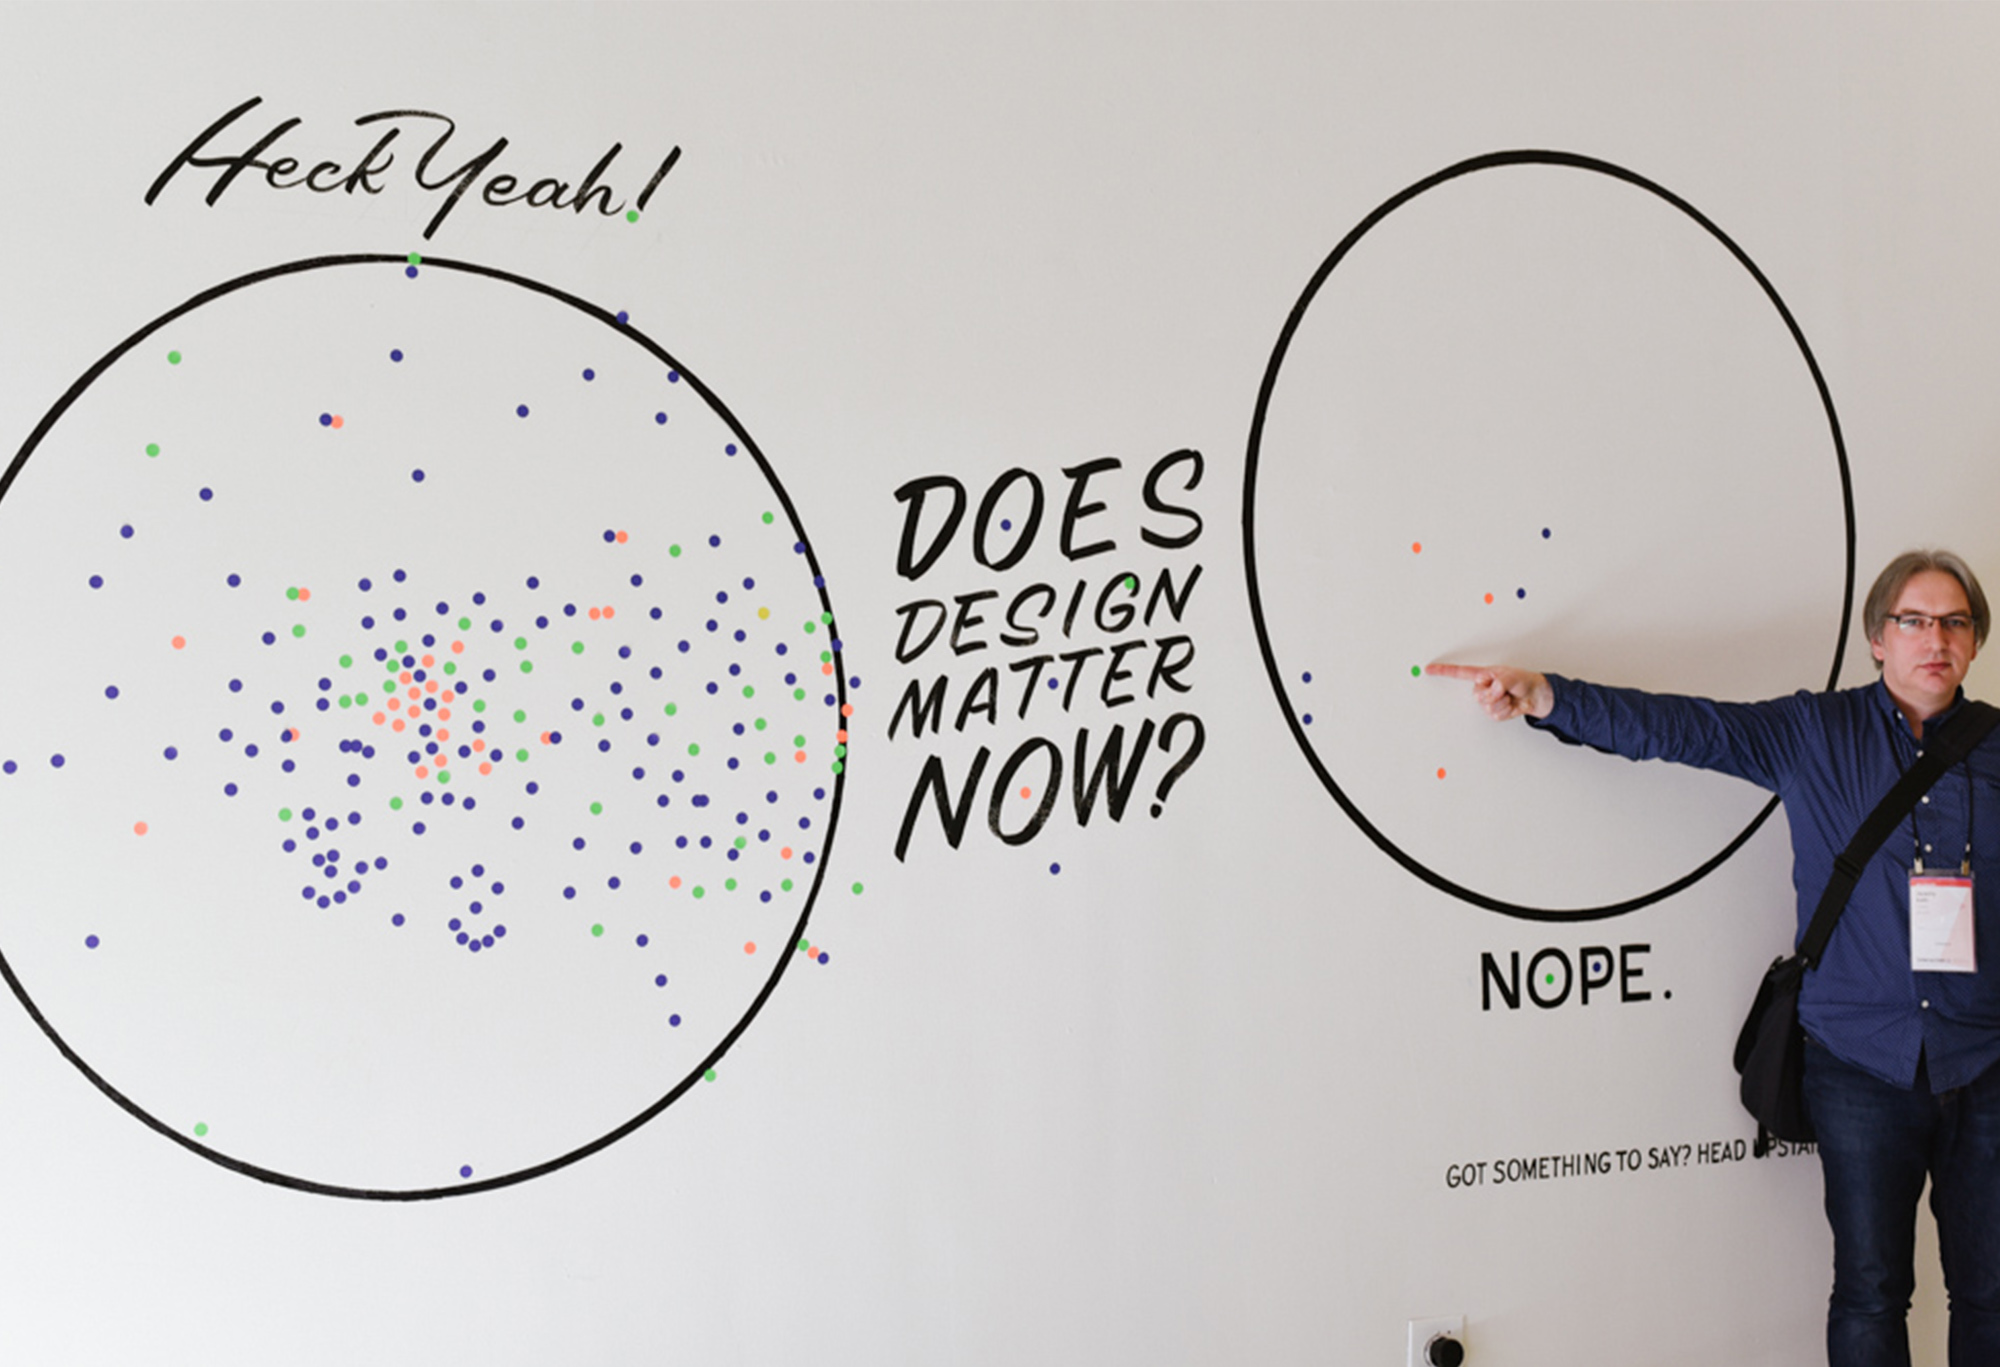 Heck Yeah!
DOES
DESIGN
MATTER
NOW?
NOPE.
GOT SOMETHING TO SAY? HEAD